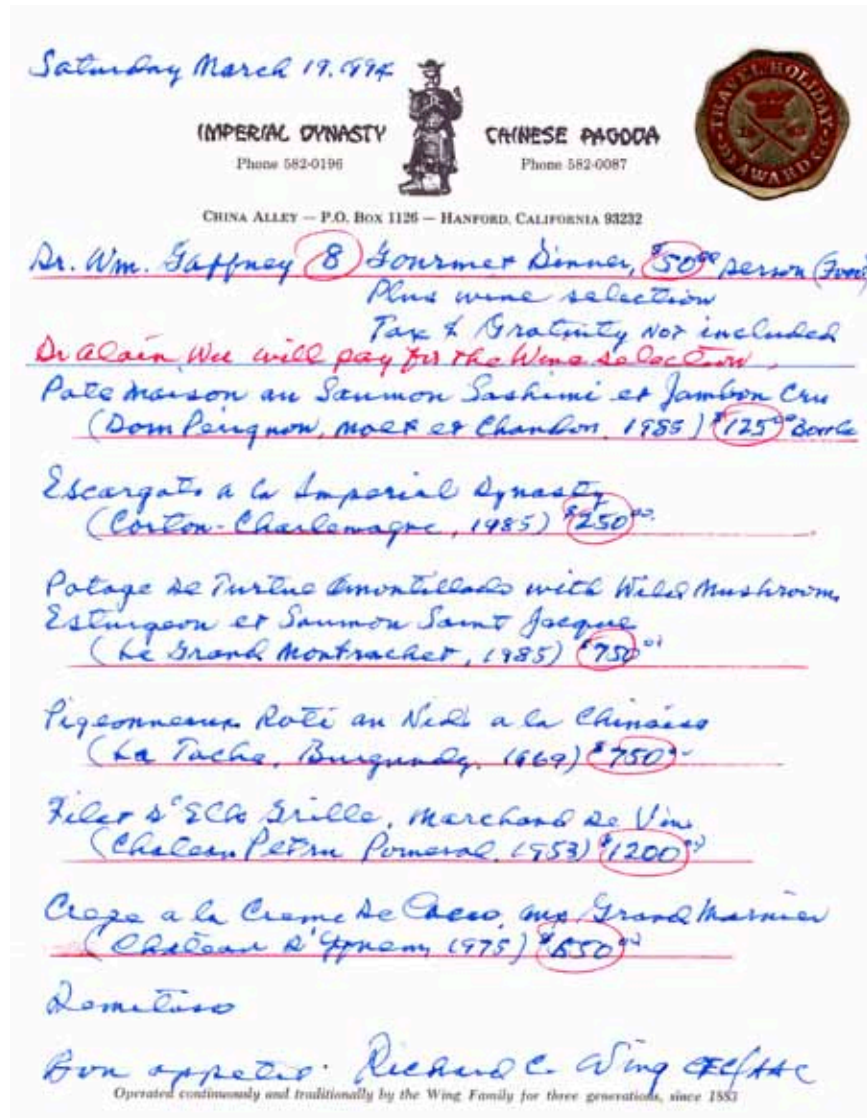 Saturday March 19, 1994
IMPERIAL DYNASTY CHINESE PAGODA
Phone 582-0196 Phone 582-0087
TRAVEL HOLIDAY
AWARD
CHINA ALLEY — P.O. BOX 1126 — HANFORD, CALIFORNIA 93232
Dr. Wm. Gaffney 8 Gourmet Dinner, $50.00 person (Food)
Plus wine selection
Tax & Gratuity Not included
Dr Alain Wu will pay for the Wine selection.
Pate Maison au Saumon Sashimi et Jambon Cru
(Dom Perignon, Moet et Chandon, 1985) $125.00 Bottle
Escargots a la Imperial Dynasty
(Corton-Charlemagne, 1985) $250.00
Potage de Turtue Amontillado with Wild Mushroom
Esturgeon et Saumon Saint Jacque
(Le Grand Montrachet, 1985) $750.00
Pigeonneaux Roti au Nids a la Chinoise
(La Tache, Burgundy, 1969) $750
Filet d'Elk Grille, Marchand de Vin
(Chateau Petru Pomerol, 1953) $1200.00
Crepe a la Creme de Cacao, Grand Marnier
(Chateau d'Yquem, 1975)
Demitasse
Bon appetit. Richard C. Wing CEC/AAC
Operated continuously and traditionally by the Wing Family for three generations, since 1883